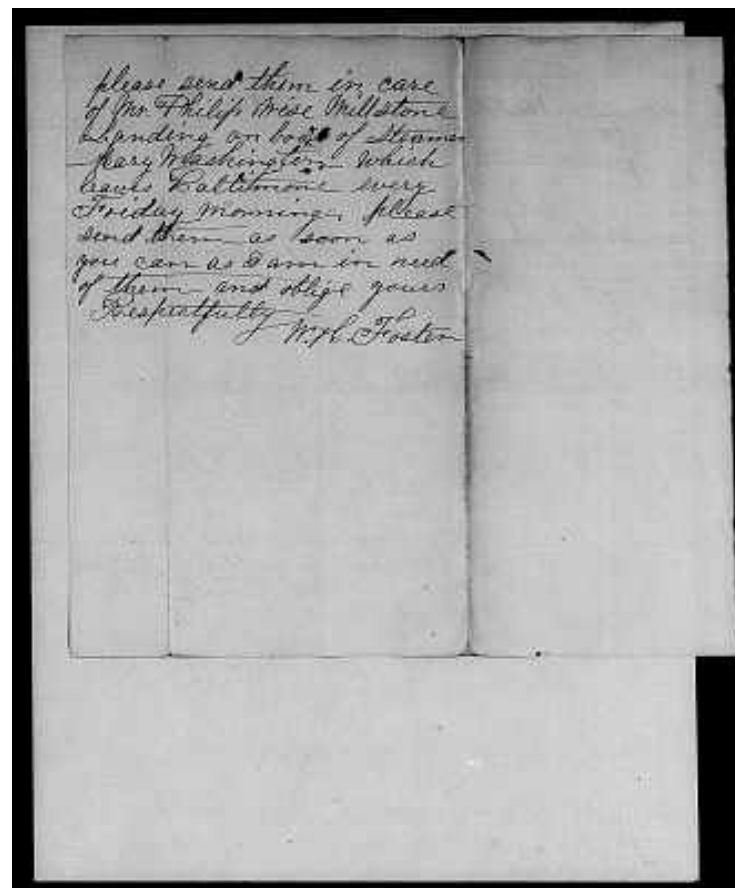 please send them in care
of Mr. Philip Wise Millstone
Landing on board of Steamer
Mary Washington which
leaves Baltimore every
Friday morning, please
send them as soon as
you can as I am in need
of them and oblige yours
Respectfully
Foster